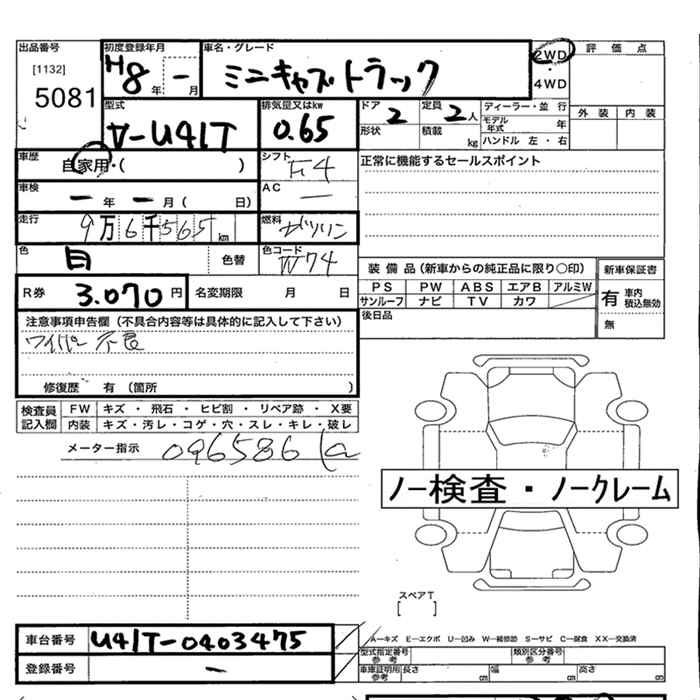 出品番号 初度登録年月 車名・グレード 2WD 評価点
[1132] H8 年 - 月 ミニキャブトラック ・
5081 4WD
型式 排気量又はkw ドア 2 定員 2人 ディーラー・並行 外装 内装
V-U41T 0.65 形状 積載 kg モデル年式 年
ハンドル 左・右
車歴 自家用・( ) シフト F4 正常に機能するセールスポイント
車検 - 年 - 月( 日) AC -
走行 9万6千565km 燃料 ガソリン
色 白 色替 色コード W74
R券 3.070円 名変期限 月 日
装備品(新車からの純正品に限り○印) 新車保証書
PS PW ABS エアB アルミW 有 車内積込無効
サンルーフ ナビ TV カワ
後日品 無
注意事項申告欄(不具合内容等は具体的に記入して下さい)
ワイパー不良
修復歴 有(箇所 )
検査員記入欄 FW キズ・飛石・ヒビ割・リペア跡・X要
内装 キズ・汚レ・コゲ・穴・スレ・キレ・破レ
メーター指示 096586km
ノー検査・ノークレーム
スペアT
[ ]
A-キズ E-エクボ U-凹み W-補修跡 S-サビ C-腐食 XX-交換済
車台番号 U41T-0403475
登録番号 -
型式指定番号 参考 類別区分番号 参考
車庫証明用 参考 長さ cm 幅 cm 高さ cm